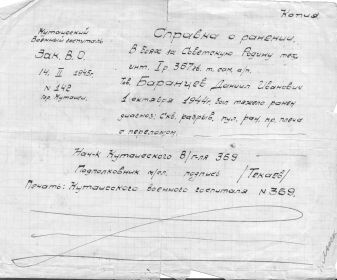 Копия
Кутаисский
Военный госпиталь
Зак. В.О.
14. II 1945г.
N 142
гор. Кутаиси.
Справка о ранении.
В боях за Советскую Родину тех.
инт. I р 367
тов. Баранцев Даниил Иванович
1 октября 1944г. был тяжело ранен
диагноз: Скв. разрыв. пул. ран. пр. плеча
с переломом.
Нач-к Кутаисского В/г-ля 369
Подполковник м/сл. подпись /Текаев/
Печать: Кутаисского военного госпиталя N 369.